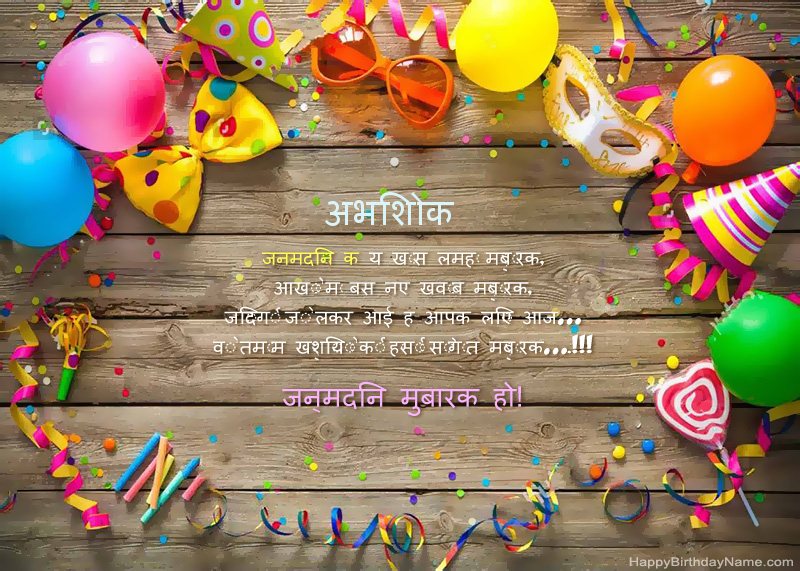 अभिशोक
जनमदिन क य खास लमहा मुबारक,
आखों में बसे नए ख्वाब मुबारक,
जिंदगी जो लेकर आई है आपके लिए आज...
वो तमाम खुशियों की हँसी सौगात मुबारक...!!!
जन्मदिन मुबारक हो!
HappyBirthdayName.com